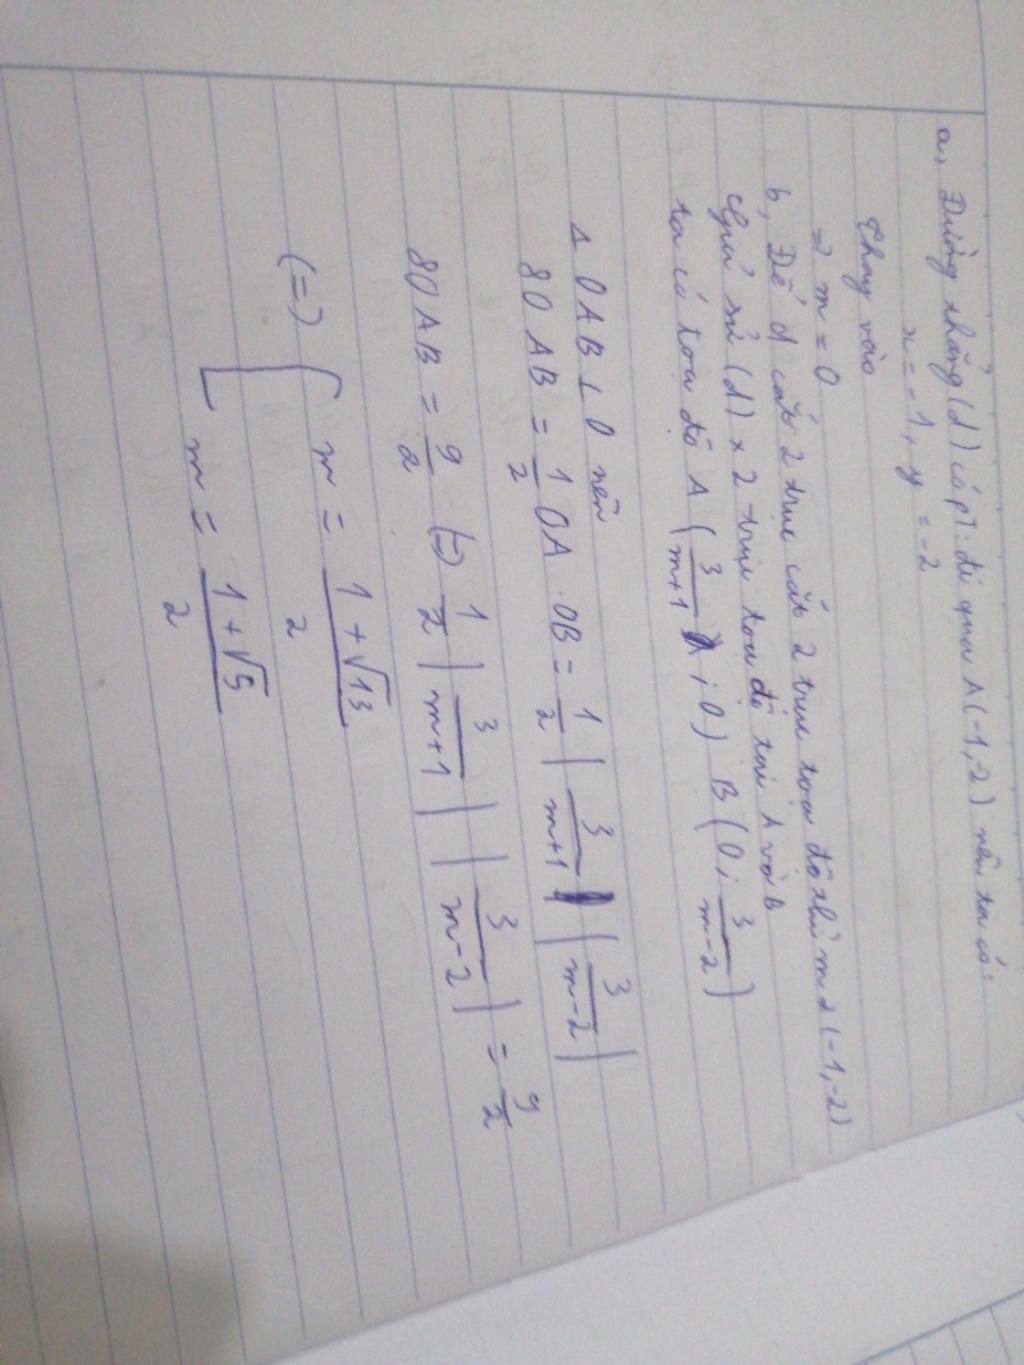 a, Đường thẳng (d) có pT: đi qua A(-1,-2) nên ta có:
x = -1, y = -2
Thay vào
=> m = 0
b, Để d cắt 2 trục cắt 2 trục toạ độ thì m ≠ (-1,-2)
Giả sử (d) x 2 trục toạ độ tại A và B
ta có toạ độ A ( 3/m+1 ; 0) B ( 0; 3/m-2 )
Δ OAB ⊥ O nên
SOAB = 1/2 OA . OB = 1/2 | 3/m+1 | | 3/m-2 |
SOAB = 9/2 (=) 1/2 | 3/m+1 | | 3/m-2 | = 9/2
(=) [ m = 1+√13 / 2
m = 1+√5 / 2